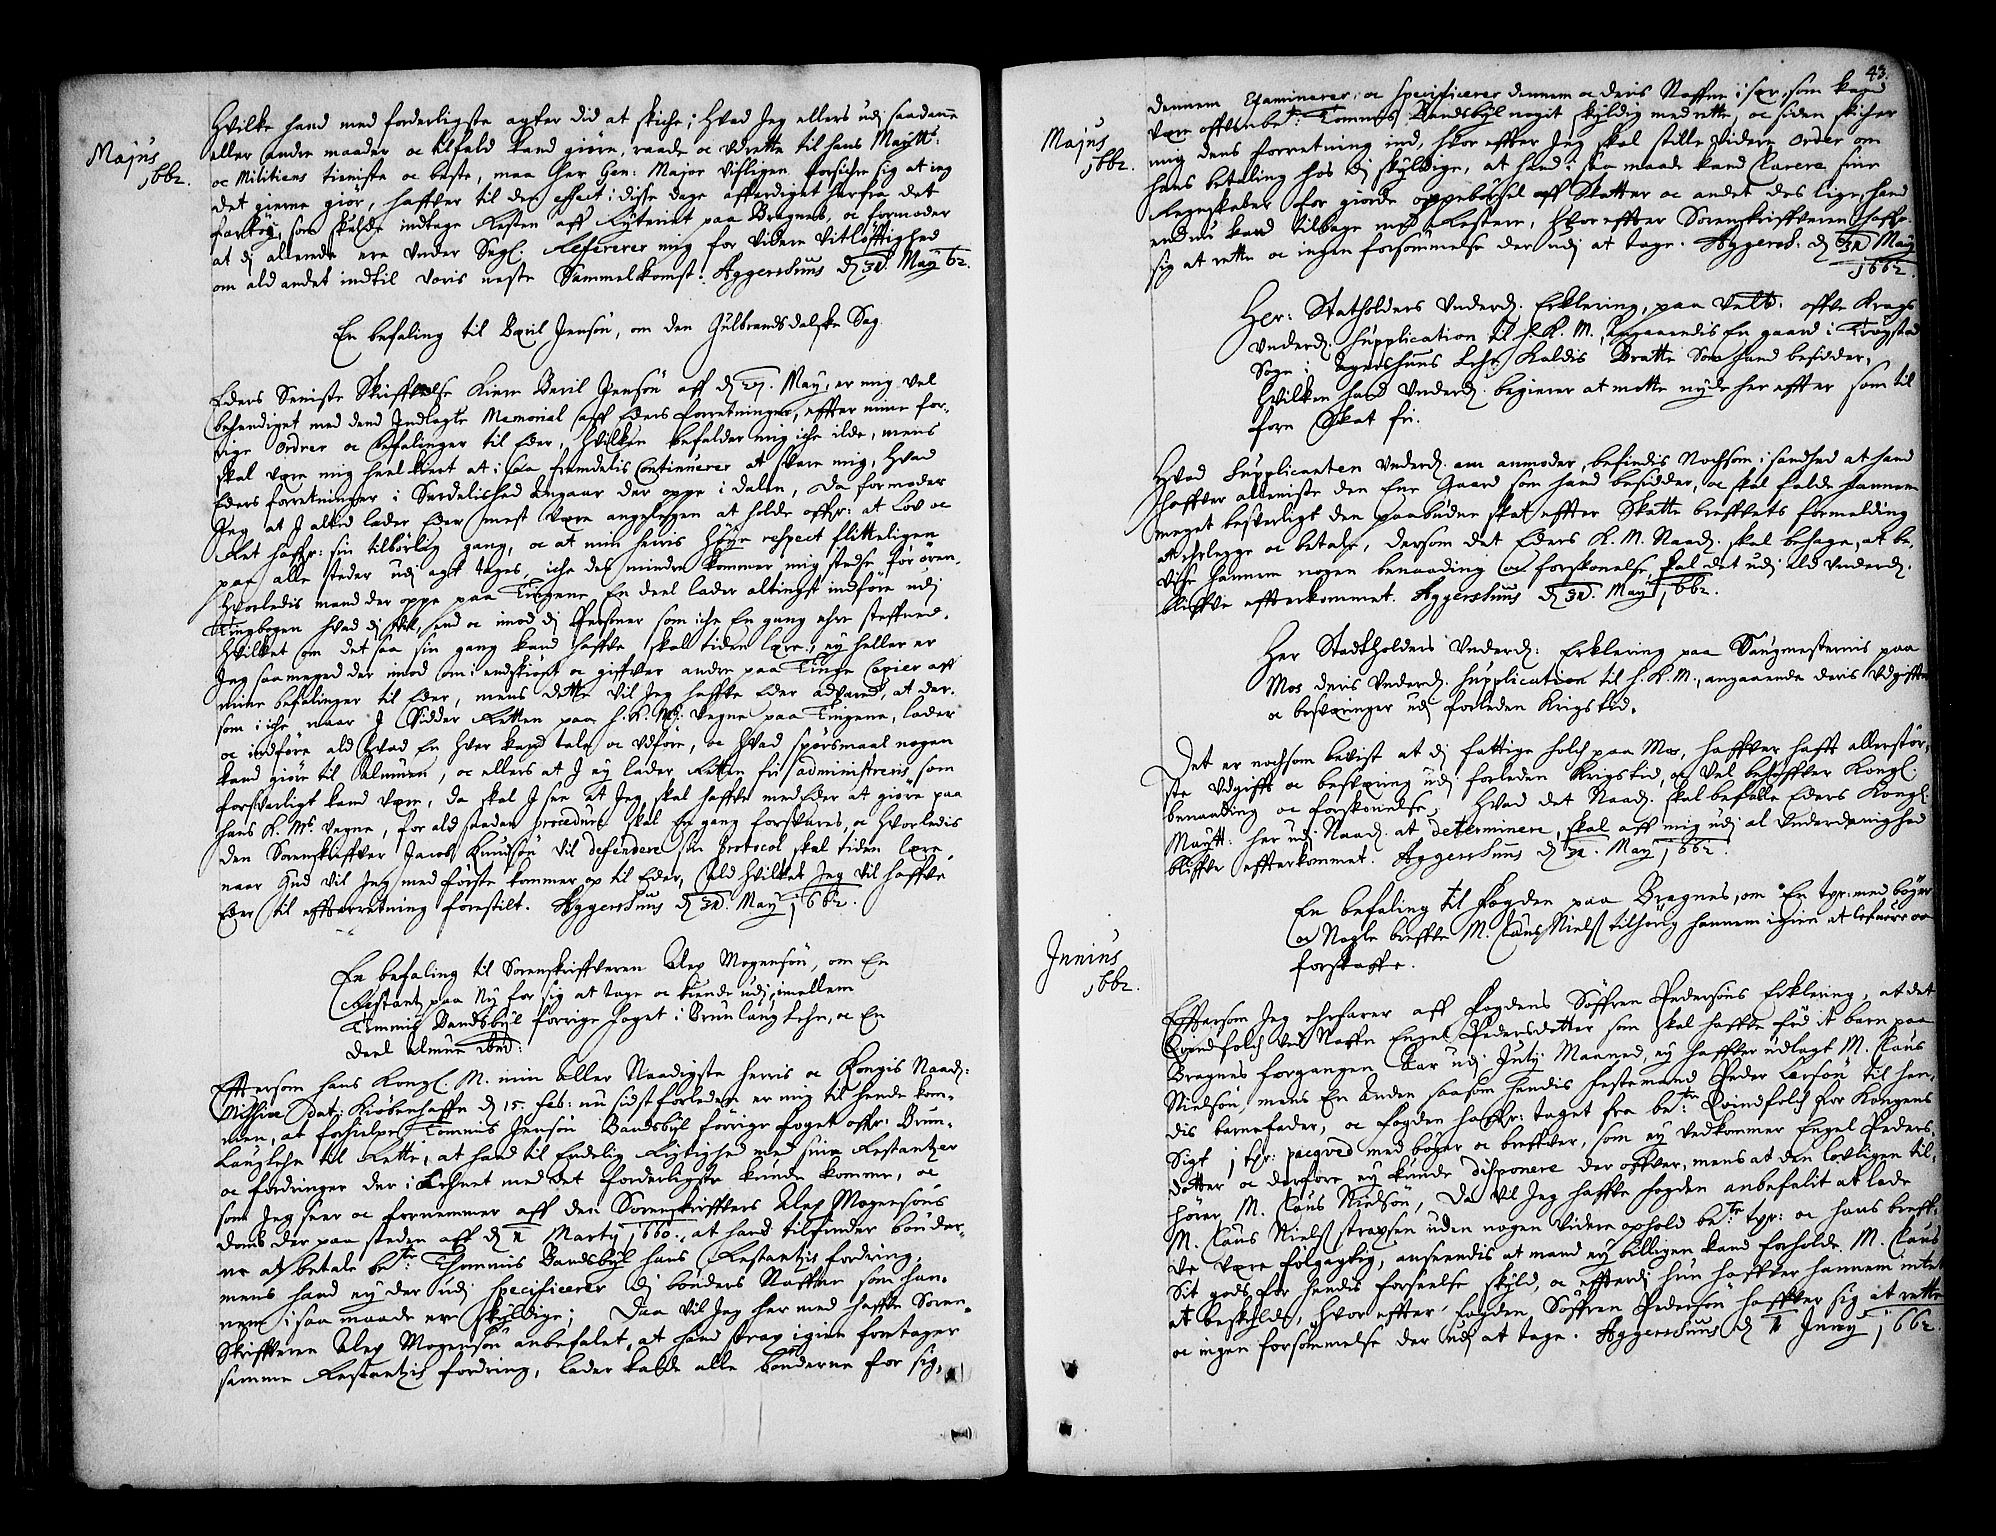 Majus
1662.
Hvilke hand med forderligste agter did at skiche; Hvad Jeg ellers udj saadanne
eller andre maader oc tilfald kand giøre, raade oc udrette til hans Maytts:
oc Militiens tieniste oc beste, maa Her Gen: Major visseligen forsichre sig at ieg
det gierne giør, haffver til den effect i disse dage affærdiget herfra det
fartøy, som skulde indtage Resten aff Rÿteriet paa Bragnes, oc formoder
at dj allerede ere under Segl. Refererer mig for videre vitløfftighed
om ald andet indtil voris neste Sammelkomst. Aggershuus d 30. May 62.
En befaling til Boril Jensøn, om den Gulbrandsdalske Sag
Eders Seniste Skriffvelse kiere Boril Jensøn aff d 27. May, er mig vel
behendiget med dend Indlagte Memorial aff Eders forretninger, effter mine for-
rige ordrer oc befalinger til Eder, Hvilken befalder mig iche ilde, mens
skal være mig heel kiert at i saa fremdelis Continuerer at svare mig, Hvad
Eders forretninger i Særdelished angaar der oppe i dalen, Da formoder
Jeg at J altid lader Eder mest være angelegen at holde offver at Lov oc
Ret haffver sin tilbørlig gang, oc at min herris Høye respect flitteligen
paa alle steder udj agt tages, iche des mindre kommer mig stedse for øren,
Hvorledis mand der oppe paa Tingene En deel lader altingest indføre udj
Tingbogen hvad dj vil, end oc imod dj Personer som iche En gang ehre steffned.
Hvilket om det saa sin gang kand haffve, skal tiden lære, ey heller er
Jeg saa meged der imod som i endskiønt oc giffver andre paa Tinge Copier aff
mine befalinger til Eder, mens dette vil Jeg haffve Eder advared, at der-
som i iche naar J sidder Retten paa h. K. Ms. vegne paa Tingene, lader
oc indføre ald hvad En hver kand tale oc udføre, oc Hvad spørsmaal nogen
kand giøre til Almuen, oc ellers at J ey lader Retten fri administreris, som
forsvarligt kand være, da skal J see at Jeg skal haffve med Eder at giøre paa
hans K. Ms. vegne, for ald saadan procedure skal En gang forsvares, oc Hvorledis
den Sorenskriffver Jacob Knudsøn vil defendere sin Protocol skal tiden lære
naar Gud vil Jeg med første kommer op til Eder, ald Hvilket Jeg vil haffve
Eder til effterretning forestilt. Aggershuus d 30. May 1662.
En befaling til Sorenskriffveren Alex Mogensøn, om En
Restantz paa Ny for sig at tage oc kiende udj, imellem
Tommis Bandsbøl forrige foget i Brunlaug Lehn, oc En
deel Almue ibid:
Effterson hans Kongl. M. min aller Naadigste herris oc Kongis Naad:
Missive dat: Kiøbenhaffn d 15. Feb: nu sidstforleden er mig til hende kom-
men, at forhielpe Tommis Jensøn Bandsbøl forrige foget offver Brun-
laugLehn til Rette, at hand til Endelig Rigtighed med sine Restantzer
oc fordringer der i Lehnet med det forderligste kunde komme, oc
som Jeg seer oc fornemmer aff den Sorenskriffvers Alex Mogensøns
dom der paa steden aff d 2 Marty 1660. at hand tilfinder bønder-
ne at betale bete: Thommis Bandsbøl hans Restantzis fordring,
mens hand ey der udj specificerer dj bønders Naffne som han-
nem i saa maade ere skyldige; Daa vil Jeg her med haffve Soren-
skriffveren Alex Mogensøn anbefalet, at hand strax igien foretager
samme Restantzis fordring, lader kalde alle bønderne for sig,
43.
Majus
1662.
dennem Examinerer, oc specificerer dennem oc deris Naffne i sær, som kand
være offvenbete: Tommis Bandsbøl nogit skyldig med rette, oc siden skicher
mig dens forretning ind, Hvor effter Jeg skal stille videre order om
hans betaling hos dj skyldige, at hand i saa maade kand Clarere sine
Regenskaber for giorde oppebørsel aff Skatter oc andet des lige, hand
endnu kand tilbage med Restere, Hvor effter Sorenskriffveren haffver
sig at rette oc ingen forsømmelse der udj at tage. Aggersh. d 30 May
1662.
Her: Statholders Underd. Erklering, paa Velb. offve Krags
Underd. supplication til h. K. M., angaaendis En gaard i Trøgstad
Sogn i Aggershuus Lehn kaldis Bratte som hand besidder,
Hvilken hand Underd. begierer at motte nyde her effter som til
forn Skat fri.
Hvad Supplicanten Underd. om anmoder, befindis Nochsom i sandhed at hand
haffver alleniste den Ene Gaard som hand besidder, oc skal falde hannem
meget besverligt den paabudne skat effter Skatte breffvets formelding
at erlegge oc betale, dersom det Eders K. M. Naad. skal behage, at be-
vise hannem nogen benaading oc forskonelse skal det udj ald Underd.
bliffve effterkommet. Aggershuus d 30. May 1662.
Her Stadtholders Underd: Erklering paa Saugmesternis paa
Mos deris Underd. Supplication til h. K. M., angaaende deris Udgiffter
oc besveringer udj forleden Krigstid.
Det er nochsom bevist at dj fattige folch paa Mos, haffver hafft allerstør-
ste Udgifft oc besvering udj forleden Krigstid, oc vel behøffver Kongl.
benaading oc forskonelse, Hvad det Naad. skal befalle Eders Kongl.
Maytt. her udj Naad. at determinere, skal aff mig udj al Underdanighed
bliffve effterkommet. Aggershuus d 30. May 1662.
Junius
1662.
En befaling til Fogden paa Bragnes, om En tyr: med bøger
oc Nogle breffve M. Claus Niels tilhørig hannem igien at lefuere oc
forskaffe.
Effterson Jeg erfarer aff Fogdens Søffren Pedersøns Erklering, at det
Qvindfolch ved Naffn Engel Pedersdatter som skal haffve fød it barn paa
Bragnes forgangen Aar udj July Maaned, ey haffver udlagt M. Claus
Nielsøn, mens En Anden saasom hendis festemand Peder Larsøn til hen-
dis barnefader, oc Fogden haffver taget fra bete: Qvindfolch for Kongens
Sigt 1 tyr: pacqved med bøger oc breffver, som ey vedkommer Engel Peders-
datter oc derfore ey kunde disponere der offver, mens at den lovligen til-
hører M. Claus Nielsøn, Da vil Jeg haffve fogden anbefalit at lade
M. Claus Niels strax uden nogen videre ophold bete: tyr: oc hans breff-
ve være følgagtig, anseendis at mand ey billigen kand forholde M. Claus
Sit gods for hendis forseelse skyld, oc effterdj hun haffver hannem intet
at beskylde, Hvor effter fogden Søffren Pedersøn haffver sig at rette
oc ingen forsømmelse der udj at tage. Aggershuus d 2 Juny 1662.